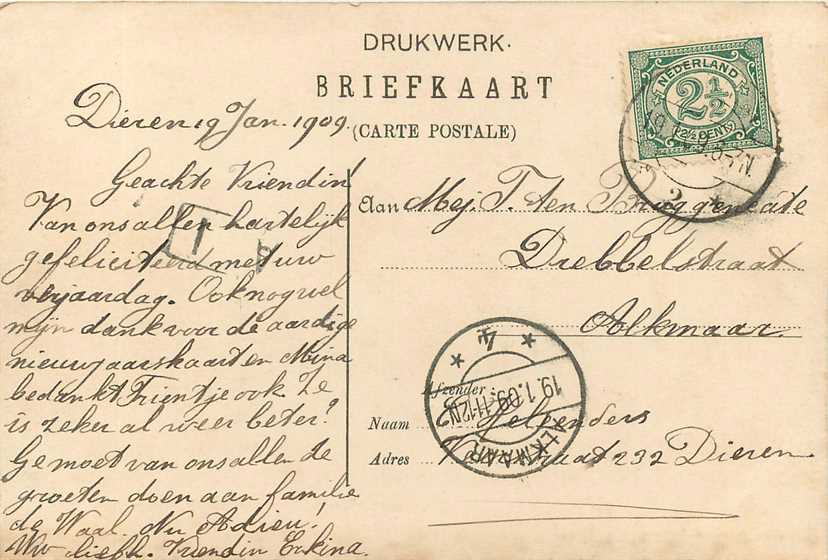 DRUKWERK.
BRIEFKAART
(CARTE POSTALE)
NEDERLAND
2½
(2½ CENT)
Dieren 19 Jan. 1909.
Geachte Vriendin!
Van ons allen hartelijk
gefeliciteerd met uw
verjaardag. Ook nog wel
mijn dank voor de aardige
nieuwjaarskaart en Mina
bedankt Trientje ook. Ze
is zeker al weer beter?
Ge moet van ons allen de
groeten doen aan familie
de Waal. Nu Adieu!
Uw liefh. Vriendin Erkina.
Aan Mej. T. ten Bruggencate
Drebbelstraat
Alkmaar.
ALKMAAR
19.1.09.11-12N
4
T
Afzender:
Naam
Adres straat 232 Dieren